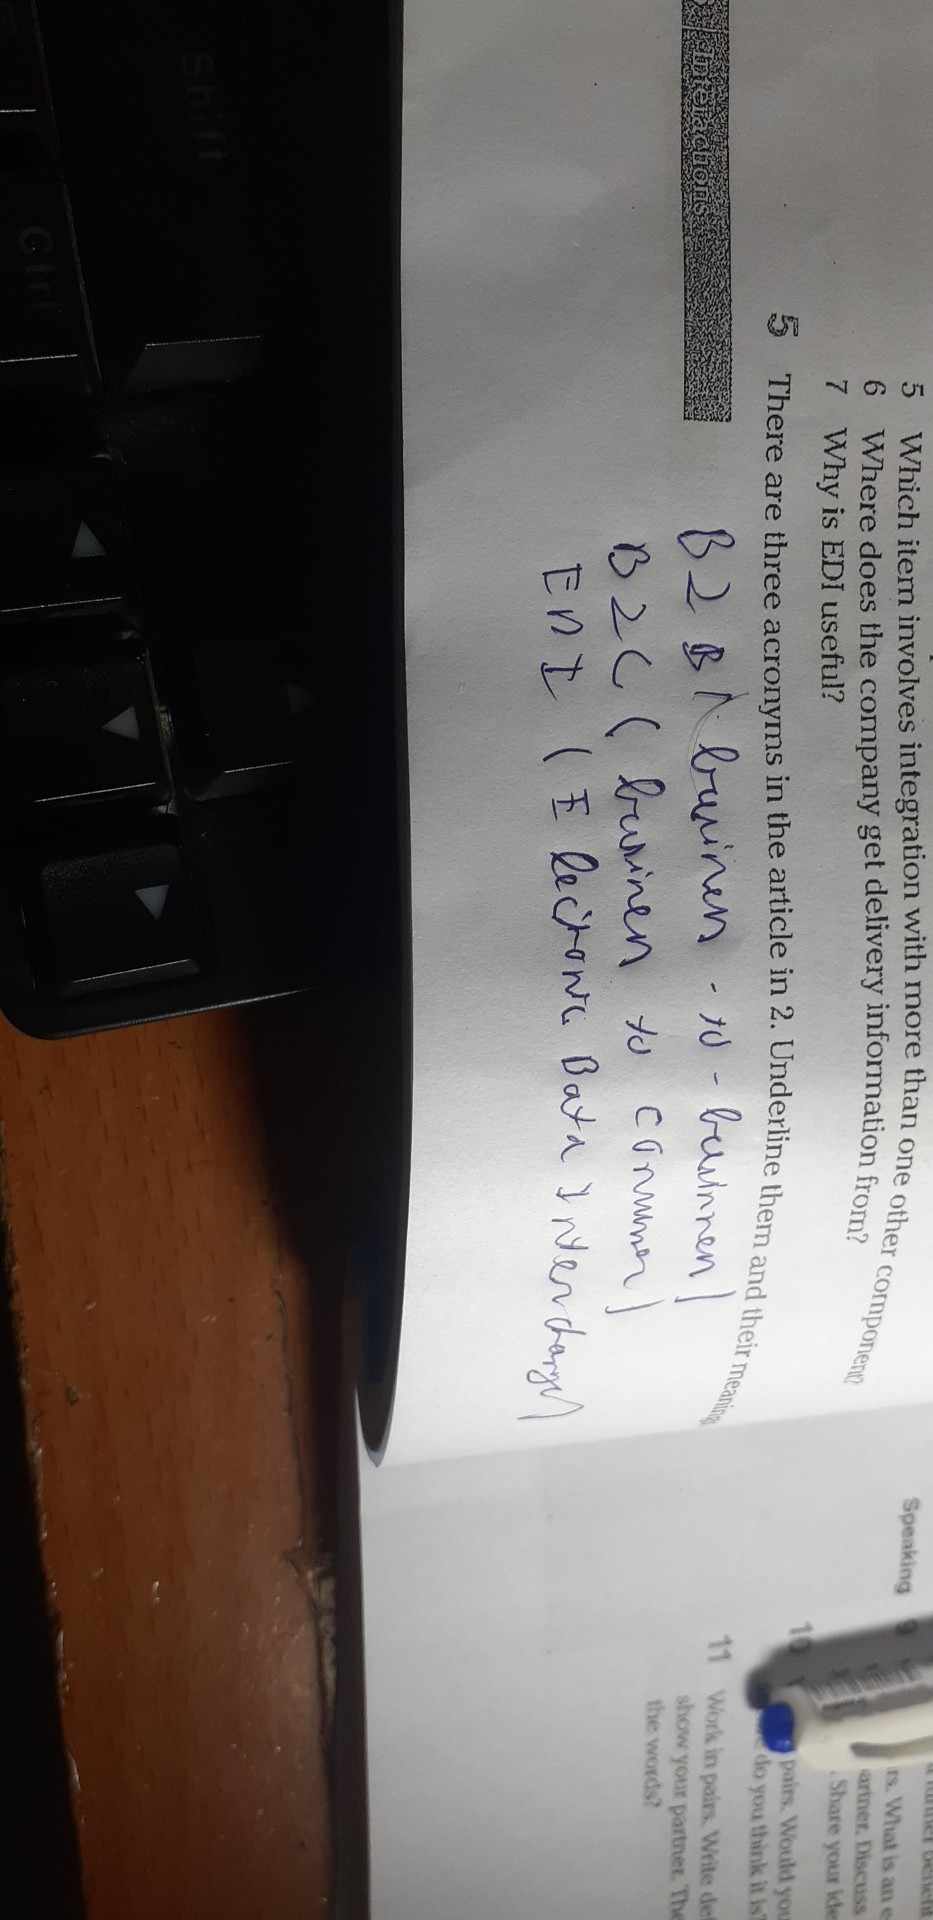 5 Which item involves integration with more than one other component?
6 Where does the company get delivery information from?
7 Why is EDI useful?
5 There are three acronyms in the article in 2. Underline them and their meaning
B2B (business - to - businnes)
B2C (business to consumer)
EDI (Electronic Data Interchange)
Interactions
Speaking
9
rs. What is an
artner. Discuss
. Share your ide
10
pairs. Would you
do you think it is?
11 Work in pairs. Write def
show your partner. The
the words?
Shift
Ctrl